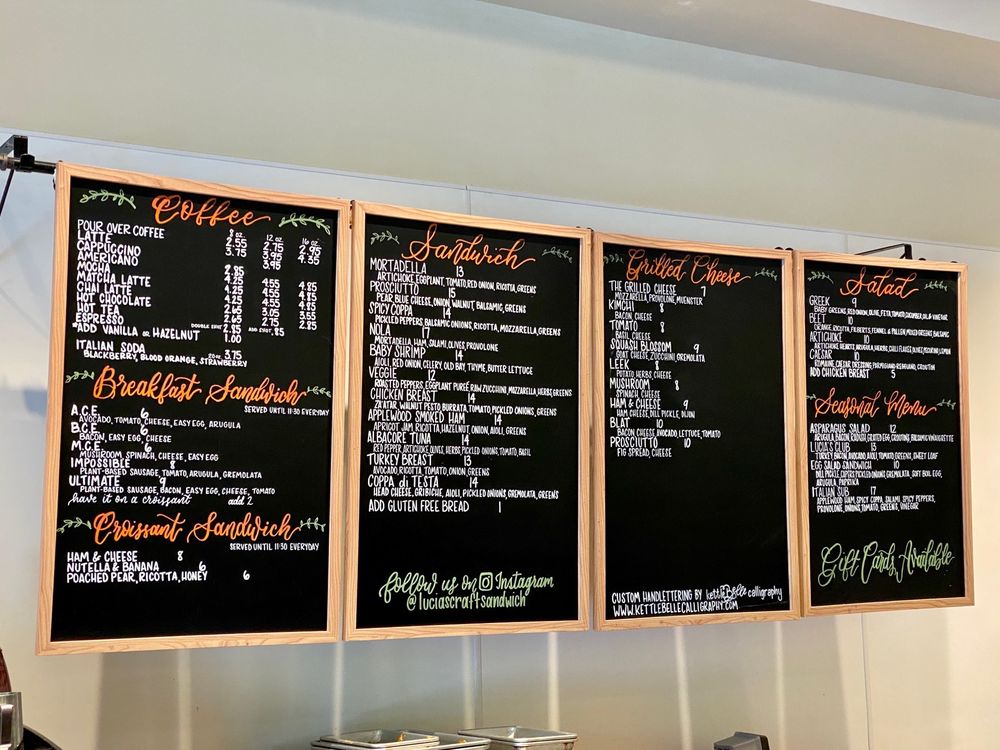 Coffee
8 oz. 12 oz. 16 oz.
POUR OVER COFFEE 2.55 2.75 2.95
LATTE 3.75 3.95 4.35
CAPPUCCINO 3.95
AMERICANO
MOCHA 2.85
MATCHA LATTE 4.25 4.55 4.85
CHAI LATTE 4.25 4.55 4.85
HOT CHOCOLATE
HOT TEA 2.65 3.05
ESPRESSO 2.65 2.75 2.85
DOUBLE SHOT 2.85 ADD SHOT .85
*ADD VANILLA or HAZELNUT 1.00
ITALIAN SODA 20oz. 3.75
BLACKBERRY, BLOOD ORANGE, STRAWBERRY
Breakfast Sandwich
SERVED UNTIL 11:30 EVERYDAY
A.C.E. 6
AVOCADO, TOMATO, CHEESE, EASY EGG, ARUGULA
B.C.E. 6
BACON, EASY EGG, CHEESE
M.C.E. 6
MUSHROOM SPINACH, CHEESE, EASY EGG
IMPOSSIBLE 8
PLANT-BASED SAUSAGE, TOMATO, ARUGULA, GREMOLATA
ULTIMATE 9
PLANT-BASED SAUSAGE, BACON, EASY EGG, CHEESE, TOMATO
have it on a croissant add 2
Croissant Sandwich
SERVED UNTIL 11:30 EVERYDAY
HAM & CHEESE 8
NUTELLA & BANANA 6
POACHED PEAR, RICOTTA, HONEY 6
Sandwich
MORTADELLA 13
ARTICHOKE, EGGPLANT, TOMATO, RED ONION, RICOTTA, GREENS
PROSCIUTTO 15
PEAR, BLUE CHEESE, ONION, WALNUT, BALSAMIC, GREENS
SPICY COPPA 14
PICKLED PEPPERS, BALSAMIC ONIONS, RICOTTA, MOZZARELLA, GREENS
NOLA 17
MORTADELLA, HAM, SALAMI, OLIVES, PROVOLONE
BABY SHRIMP 14
AIOLI, RED ONION, CELERY, OLD BAY, THYME, BUTTER LETTUCE
VEGGIE 12
ROASTED PEPPERS, EGGPLANT PURÉE, RAW ZUCCHINI, MOZZARELLA, HERBS, GREENS
CHICKEN BREAST 14
ZA'ATAR, WALNUT PESTO, BURRATA, TOMATO, PICKLED ONIONS, GREENS
APPLEWOOD SMOKED HAM 14
APRICOT JAM, RICOTTA, HAZELNUT, ONION, AIOLI, GREENS
ALBACORE TUNA 14
RED PEPPER, ARTICHOKE, OLIVES, HERBS, PICKLED ONIONS, TOMATO, BASIL
TURKEY BREAST 13
AVOCADO, RICOTTA, TOMATO, ONION, GREENS
COPPA di TESTA 14
HEAD CHEESE, GRIBICHE, AIOLI, PICKLED ONIONS, GREMOLATA, GREENS
ADD GLUTEN FREE BREAD 1
follow us on Instagram
@luciascraftsandwich
Grilled Cheese
THE GRILLED CHEESE 7
MOZZARELLA, PROVOLONE, MUENSTER
KIMCHI 8
BACON, CHEESE
TOMATO 8
BASIL, CHEESE
SQUASH BLOSSOM 9
GOAT CHEESE, ZUCCHINI, GREMOLATA
LEEK 8
POTATO, HERBS, CHEESE
MUSHROOM 8
SPINACH, CHEESE
HAM & CHEESE 9
HAM, CHEESE, DILL PICKLE, DIJON
BLAT 10
BACON, CHEESE, AVOCADO, LETTUCE, TOMATO
PROSCIUTTO 10
FIG SPREAD, CHEESE
CUSTOM HANDLETTERING BY kettleBelle calligraphy
WWW.KETTLEBELLECALLIGRAPHY.COM
Salad
GREEK 9
BABY GREENS, RED ONION, OLIVE, FETA, TOMATO, CUCUMBER, OIL & VINEGAR
BEET 10
ORANGE, RICOTTA, FILBERTS, FENNEL & POLLEN, MIXED GREENS, BALSAMIC
ARTICHOKE 10
ARTICHOKE HEARTS, ARUGULA, HERBS, CHILI FLAKES, OLIVE, PECORINO, LEMON
CAESAR 10
ROMAINE, CAESAR DRESSING, PARMIGIANO-REGGIANO, CROUTON
ADD CHICKEN BREAST 5
Seasonal Menu
ASPARAGUS SALAD 12
ARUGULA, BACON, RADISH, GRATED EGG, CROUTONS, BALSAMIC VINAIGRETTE
LUCIA'S CLUB 13
TURKEY, BACON, AVOCADO, AIOLI, TOMATO, GREENS, SWEET LOAF
EGG SALAD SANDWICH 10
DILL PICKLE, CAPERS, PICKLED ONIONS, GREMOLATA, SOFT BOIL EGG,
ARUGULA, PAPRIKA
ITALIAN SUB 17
APPLEWOOD HAM, SPICY COPPA, SALAMI, SPICY PEPPERS,
PROVOLONE, ONIONS, TOMATO, GREENS, VINEGAR
Gift Cards Available